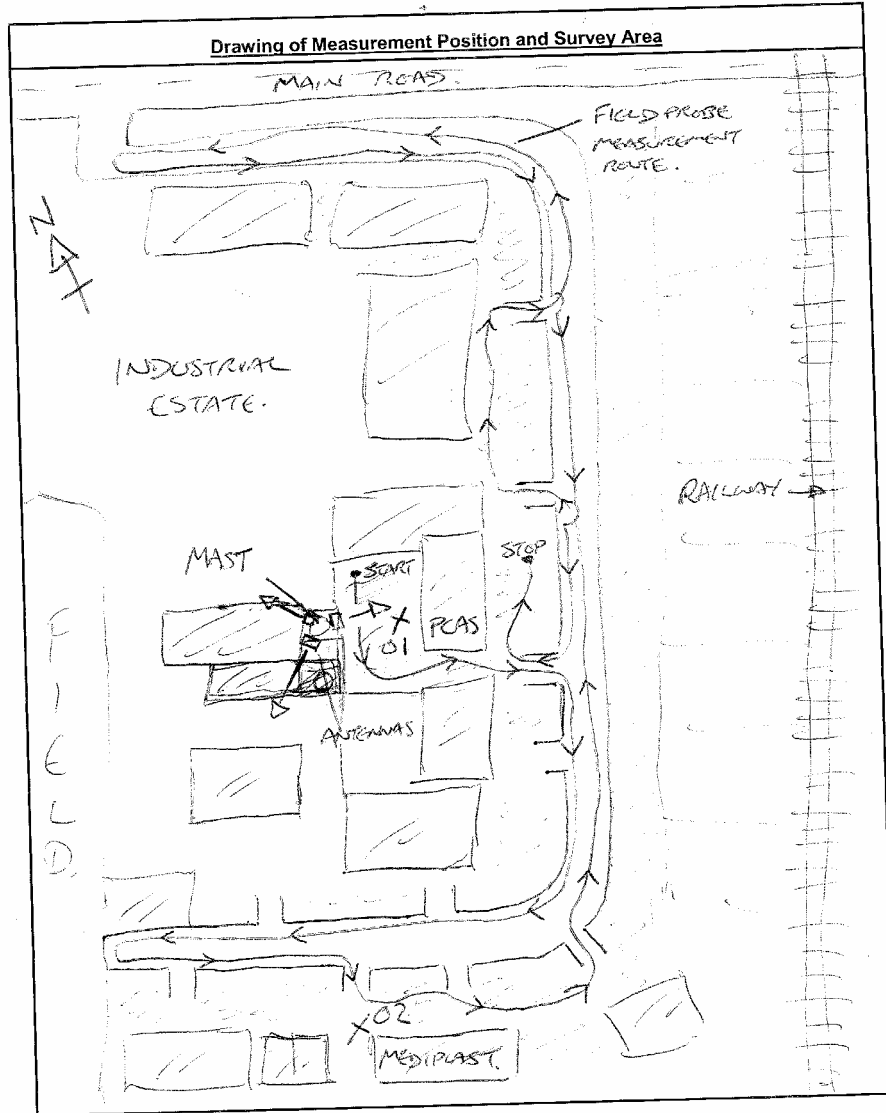 Drawing of Measurement Position and Survey Area
MAIN ROAD.
FIELD PROBE
MEASUREMENT
ROUTE.
N
INDUSTRIAL
ESTATE.
RAILWAY
MAST
START
STOP
X
01
PCAS
ANTENNAS
FIELD.
X 02
MEDIPLAST.